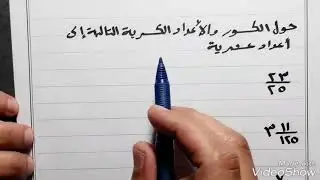 حول الكسور والأعداد الكسرية التالية إلى
أعداد عشرية
٢٣
٢٥
٣ ١١
١٢٥
Made with
VideoShow